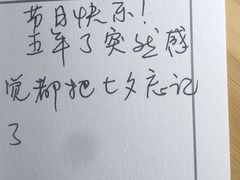 节日快乐！
五年了突然感
觉都把七夕忘记
了